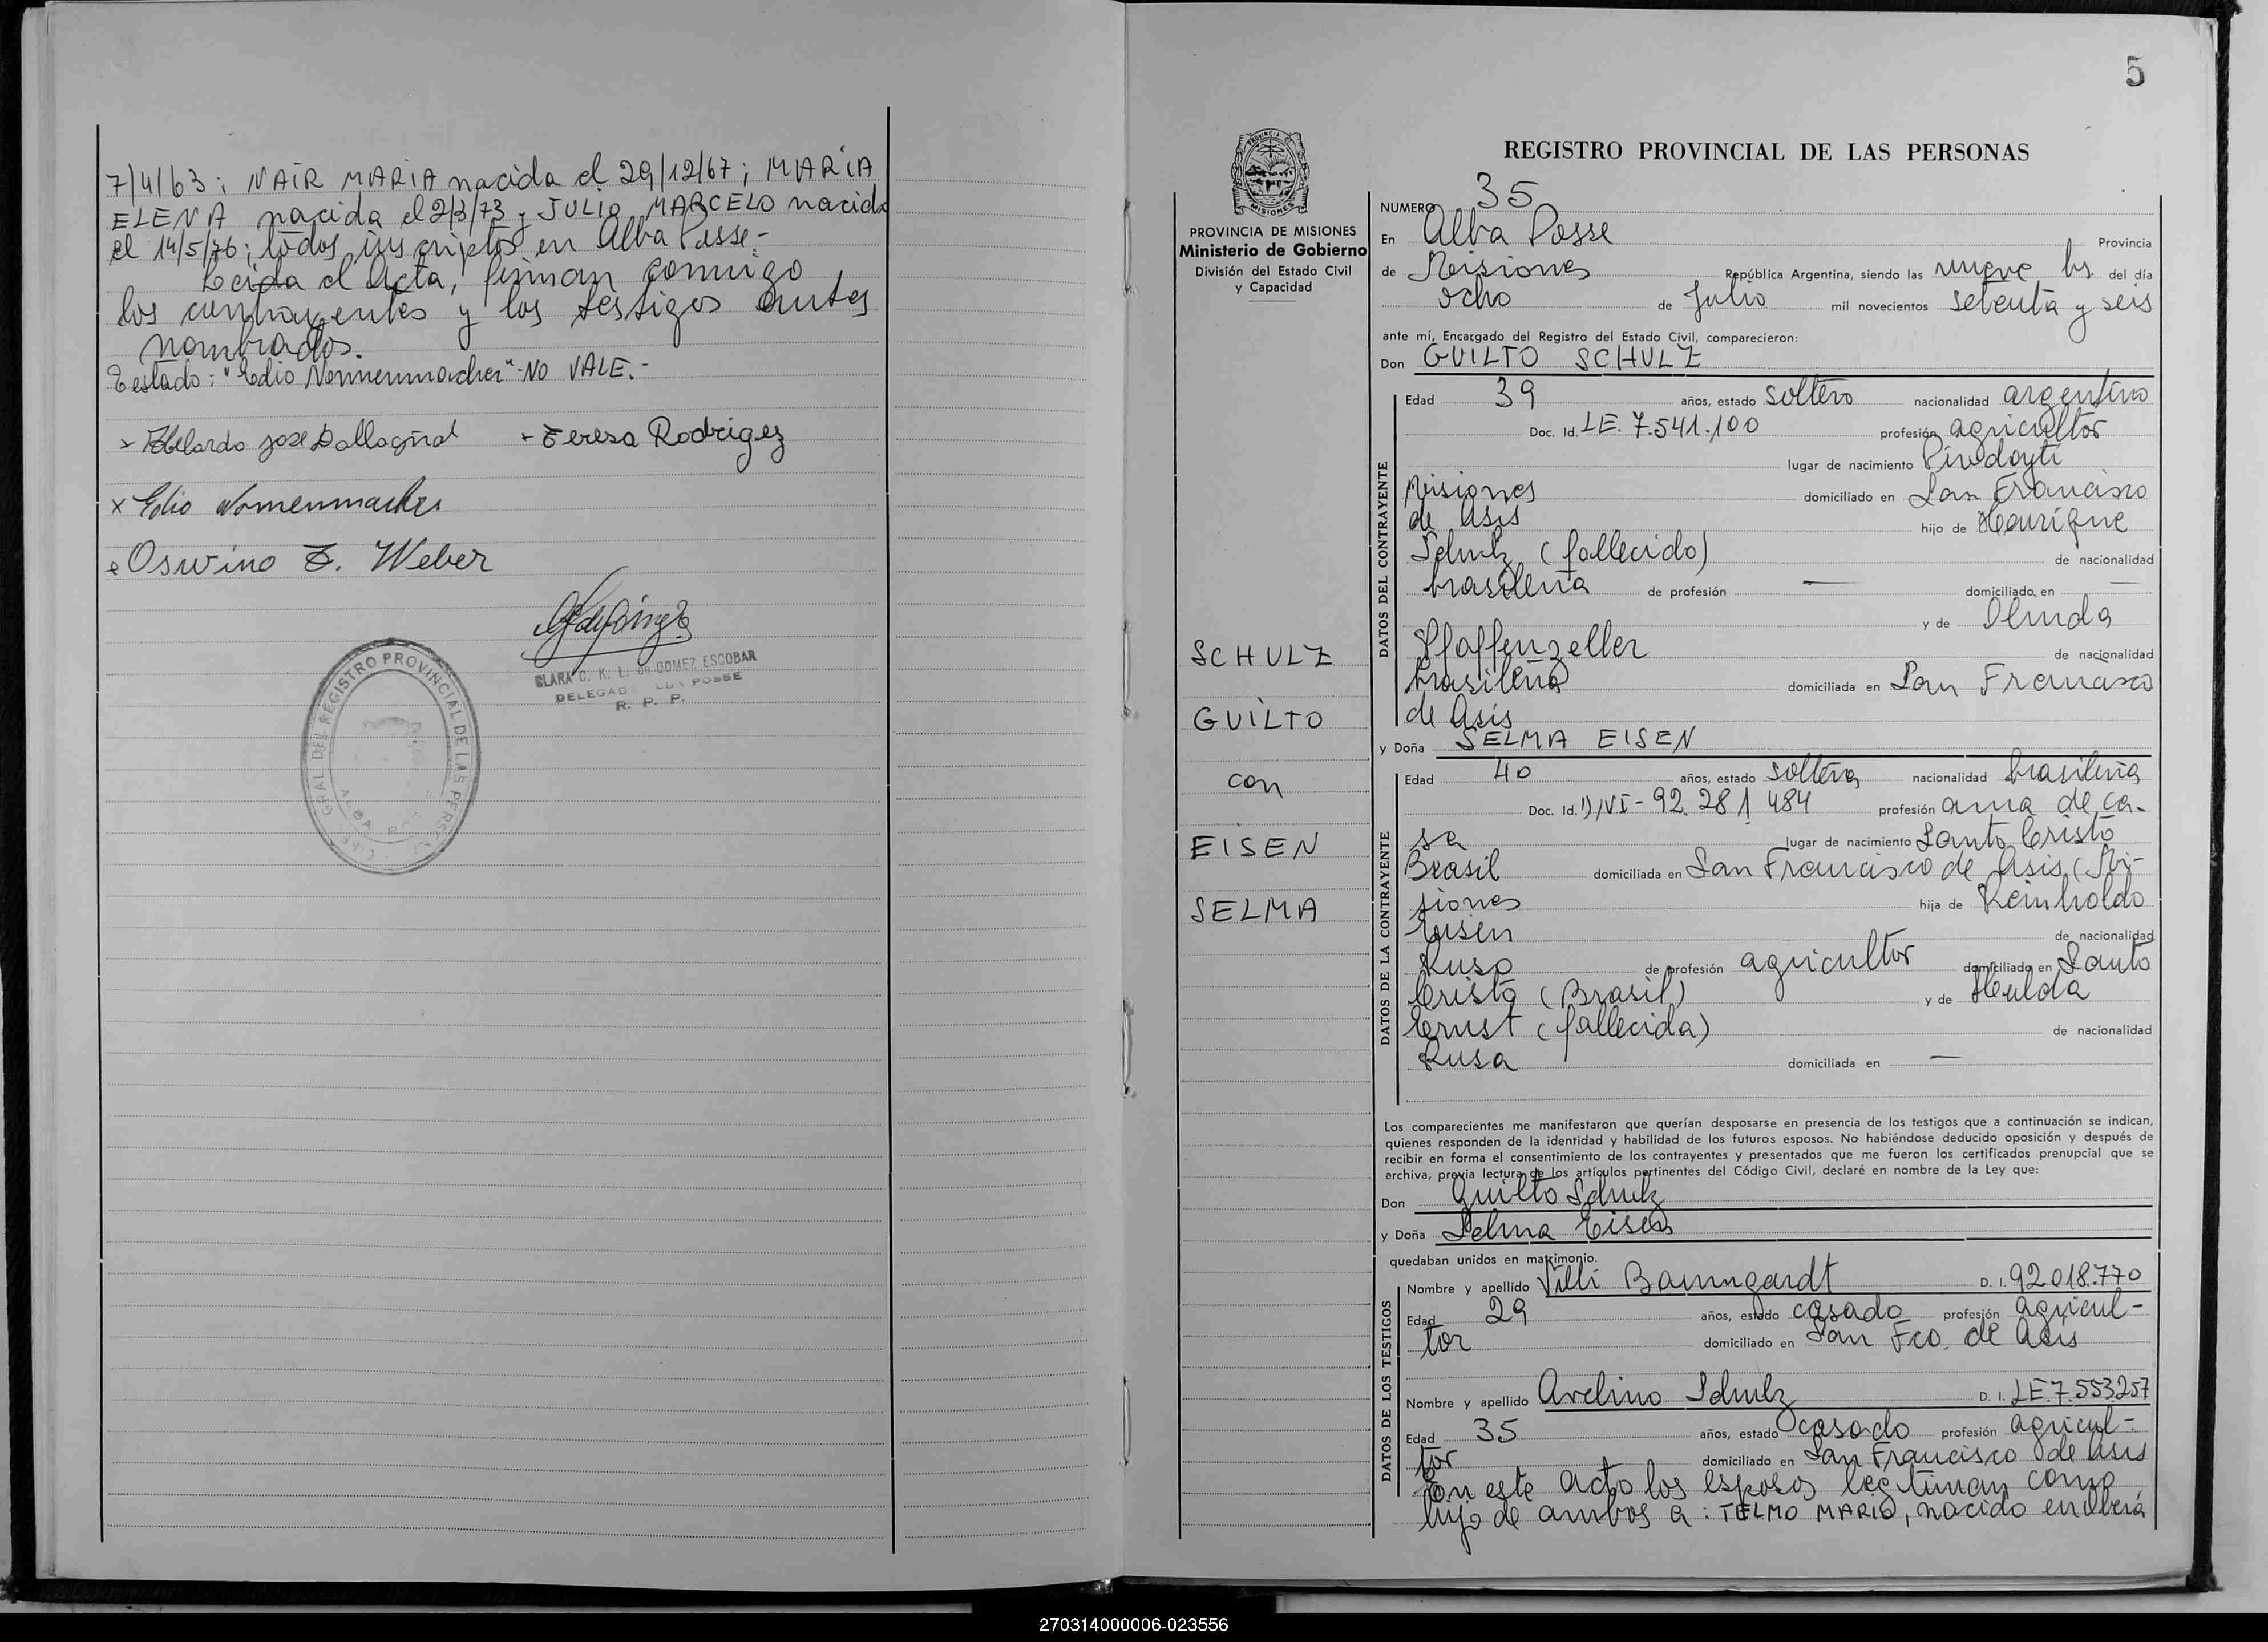 7/4/63; NAIR MARIA nacida el 29/12/67; MARIA
ELENA nacida el 2/3/73 y JULIO MARCELO nacido
el 14/5/76; todos inscriptos en Alba Posse-
Leida el Acta, firman conmigo
los contrayentes y los testigos antes
nombrados.
Testado: "Edio Nonnenmacher" - NO VALE.-
x Abelardo jose Dallagnol - Teresa Rodrigez
x Edio Nonnenmacher
Osvino E. Weber
CLARA C. K. L. de GOMEZ ESCOBAR
DELEGADA ALBA POSSE
R. P. P.
REGISTRO PROVINCIAL DE LAS PERSONAS
ALBA POSSE
5
PROVINCIA DE MISIONES
Ministerio de Gobierno
División del Estado Civil
y Capacidad
SCHULZ
GUILTO
con
EISEN
SELMA
REGISTRO PROVINCIAL DE LAS PERSONAS
NUMERO 35
En Alba Posse Provincia
de Misiones República Argentina, siendo las nueve hs. del día
ocho de Julio mil novecientos setenta y seis
ante mí, Encargado del Registro del Estado Civil, comparecieron:
Don GUILTO SCHULZ
DATOS DEL CONTRAYENTE
Edad 39 años, estado soltero nacionalidad argentino
Doc. Id. LE. 7.541.100 profesión agricultor
lugar de nacimiento Pindayti
Misiones domiciliado en San Francisco
de Asis hijo de Henrique
Schulz (fallecido) de nacionalidad
brasileña de profesión — domiciliado en —
y de Olinda
Pfaffenzeller de nacionalidad
brasileña domiciliada en San Francisco
de Asis
y Doña SELMA EISEN
DATOS DE LA CONTRAYENTE
Edad 40 años, estado soltera nacionalidad brasileña
Doc. Id. D/VI-92.281 484 profesión ama de ca-
sa lugar de nacimiento Santo Cristo
Brasil domiciliada en San Francisco de Asis (Mi-
siones hija de Reinholdo
Eisen de nacionalidad
Ruso de profesión agricultor domiciliado en Santo
Cristo (Brasil) y de Hulda
Ernst (fallecida) de nacionalidad
Rusa domiciliada en —
Los comparecientes me manifestaron que querían desposarse en presencia de los testigos que a continuación se indican,
quienes responden de la identidad y habilidad de los futuros esposos. No habiéndose deducido oposición y después de
recibir en forma el consentimiento de los contrayentes y presentados que me fueron los certificados prenupcial que se
archiva, previa lectura de los artículos pertinentes del Código Civil, declaré en nombre de la Ley que:
Don Guilto Schulz
y Doña Selma Eisen
quedaban unidos en matrimonio.
DATOS DE LOS TESTIGOS
Nombre y apellido Villi Baumgardt D. I. 92.018.770
Edad 29 años, estado casado profesión agricul-
tor domiciliado en San Fco. de Asis
Nombre y apellido Avelino Schulz D. I. LE.7.553.257
Edad 35 años, estado casado profesión agricul-
tor domiciliado en San Francisco de Asis
En este acto los esposos legitiman como
hijo de ambos a: TELMO MARIO, nacido en Oberá
270314000006-023556